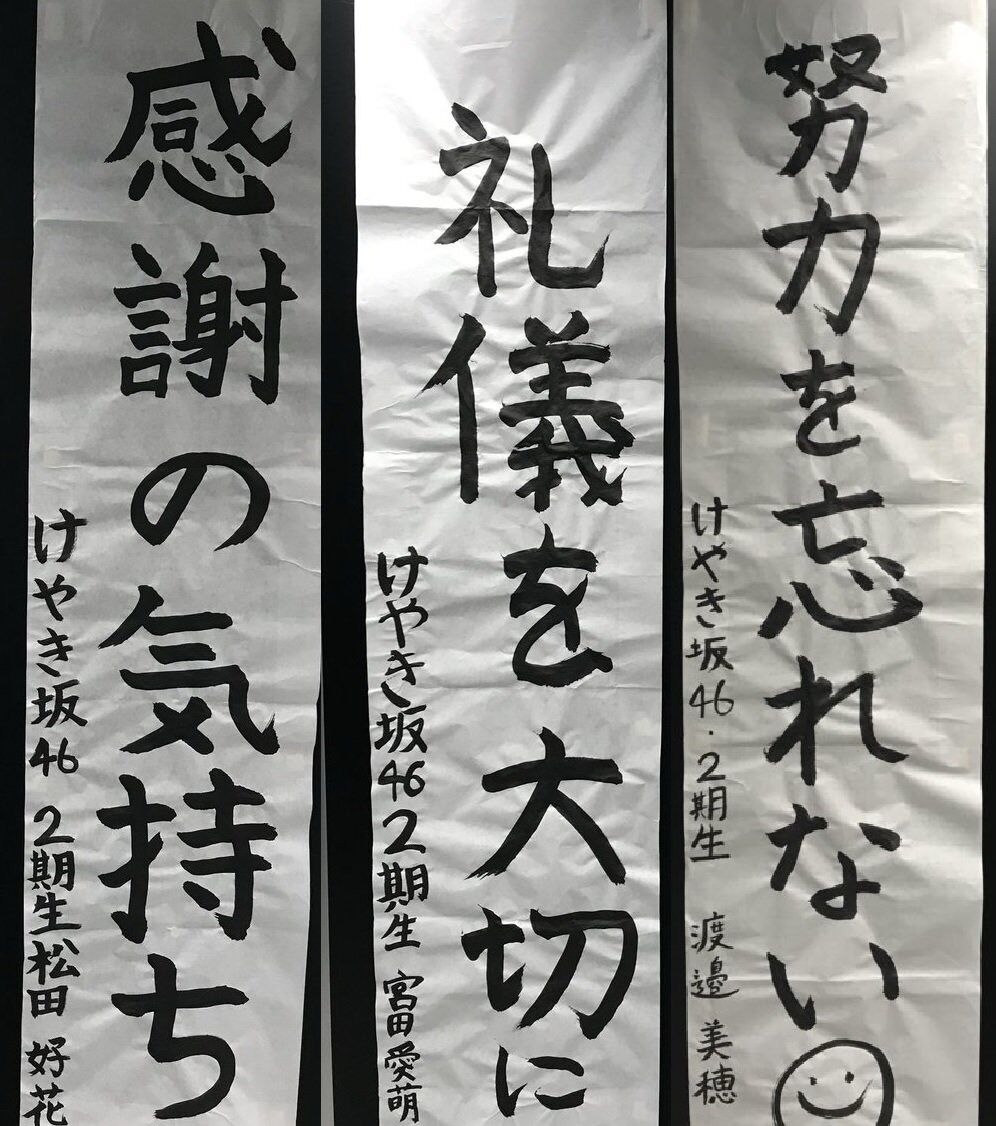 努力を忘れない
けやき坂46・2期生 渡邉 美穂
礼儀を大切に
けやき坂46 2期生 富田 愛萌
感謝の気持ち
けやき坂46 2期生 松田 好花